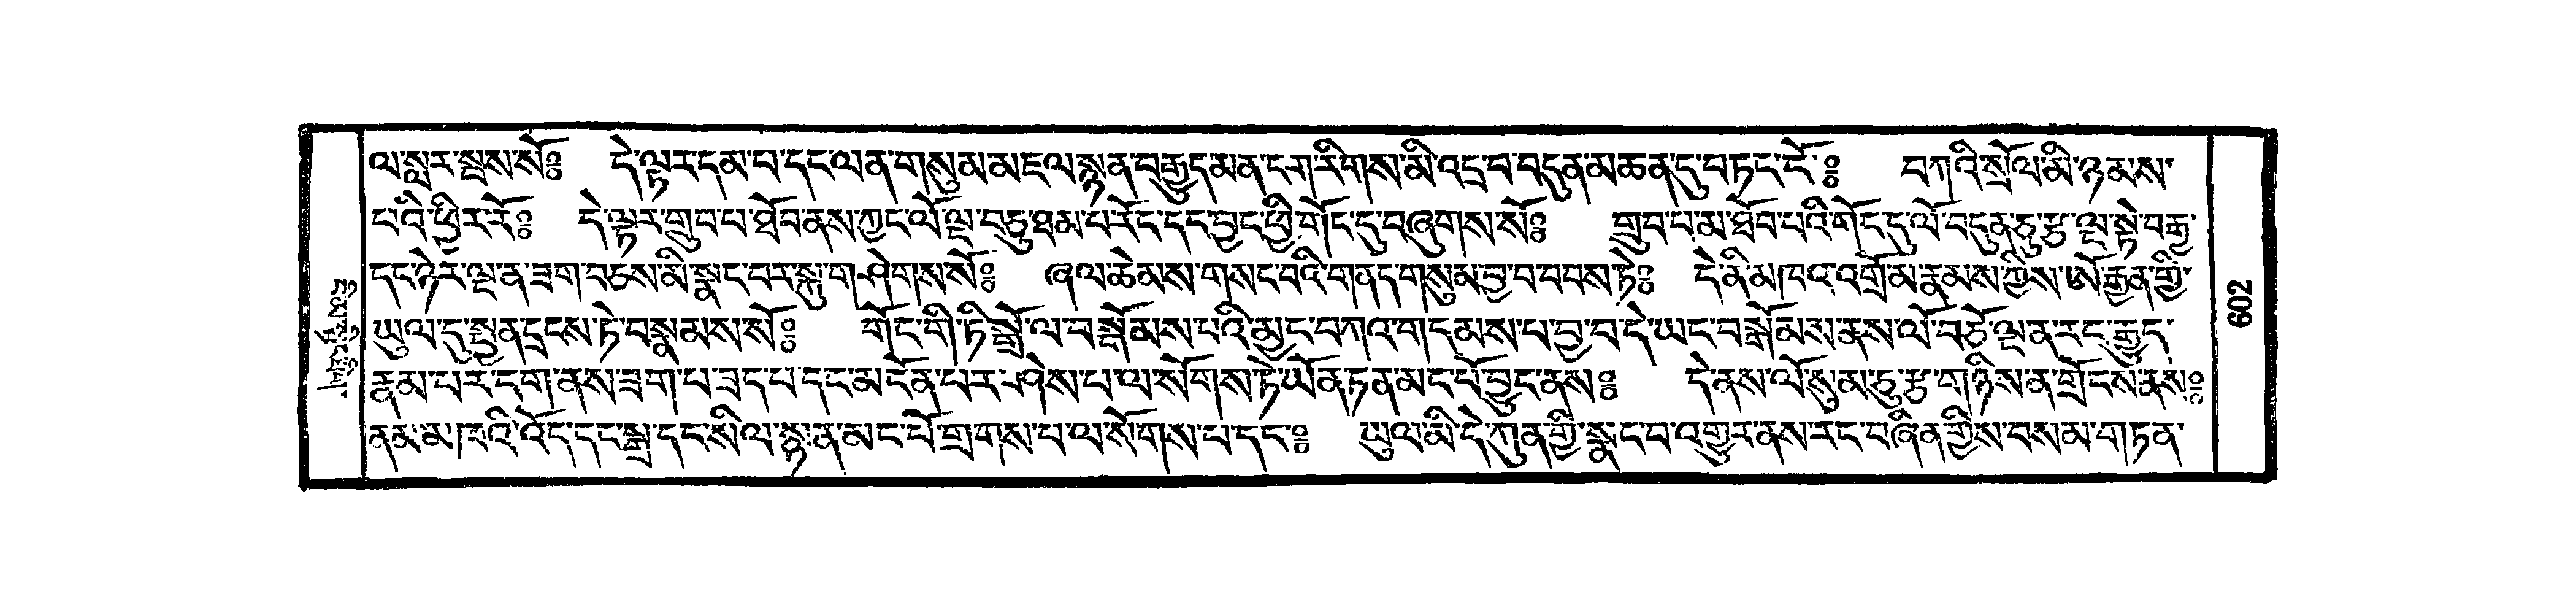 ལ་སླར་སྦས་སོ༔ དེ་ལྟར་དམ་པ་དང་ལན་གསུམ་མཇལ་སྙན་བརྒྱུད་མན་ངག་རིགས་མི་འདྲ་བ་བདུན་མཆན་དུ་བཏང་ངོ་༔ བཀའི་སྲོལ་མི་ཉམས་
པའི་ཕྱིར་རོ༔ དེ་ལྟར་གྲུབ་པ་ཐོབ་ནས་ཀྱང་ལོ་ལྔ་བཅུ་ཐམ་པ་རོང་དང་བྱང་ཕྱི་གོང་དུ་བཞུགས་སོ༔ གྲུབ་པ་མ་ཐོབ་པའི་གོང་དུ་ལོ་བདུན་ཅུ་རྩ་ལྔ་སྟེ་བརྒྱ་
དང་ཉེར་ལྔ་ན་ཟག་བཅས་མི་སྣང་བར་སྐུ་གཤེགས་སོ༔ ཞལ་ཆེམས་གསང་བའི་གནད་གསུམ་བྱ་བ་བབས་ཏེ༔ དེ་ནི་མཁའ་འགྲོ་མ་རྣམས་ཀྱིས་ཨོ་རྒྱན་གྱི་
ཡུལ་དུ་སྤྱན་དྲངས་ཏེ་བསྣམས་སོ༔ གོང་གི་ཏི་སྒྲོ་ལ་བསྒོམས་པའི་མྱང་བཀའ་གདམས་པ་བྱ་བ་དེ་ཡང་བསྒོམས་ནས་ལོ་བཅོ་ལྔ་ན་རང་རྒྱུད་
རྣམ་པར་དག་ནས་ཟག་པ་ཟད་པ་དང་མངོན་པར་ཤེས་པ་ལ་སོགས་ཏེ་ཡོན་ཏན་མང་པོ་བྱུང་ནས༔ དེ་ནས་ལོ་སུམ་ཅུ་རྩ་གཉིས་ན་གྲོངས་ནས༔
ནམ་མཁའི་འོད་དང་སྒྲ་དང་སིལ་སྙན་མང་པོ་གྲགས་པ་ལ་སོགས་པ་དང༔ ཡུལ་མི་དེ་ཀུན་གྱི་སྣང་བ་འགྱུར་ནས་རང་བཞིན་གྱིས་བསམ་གཏན་